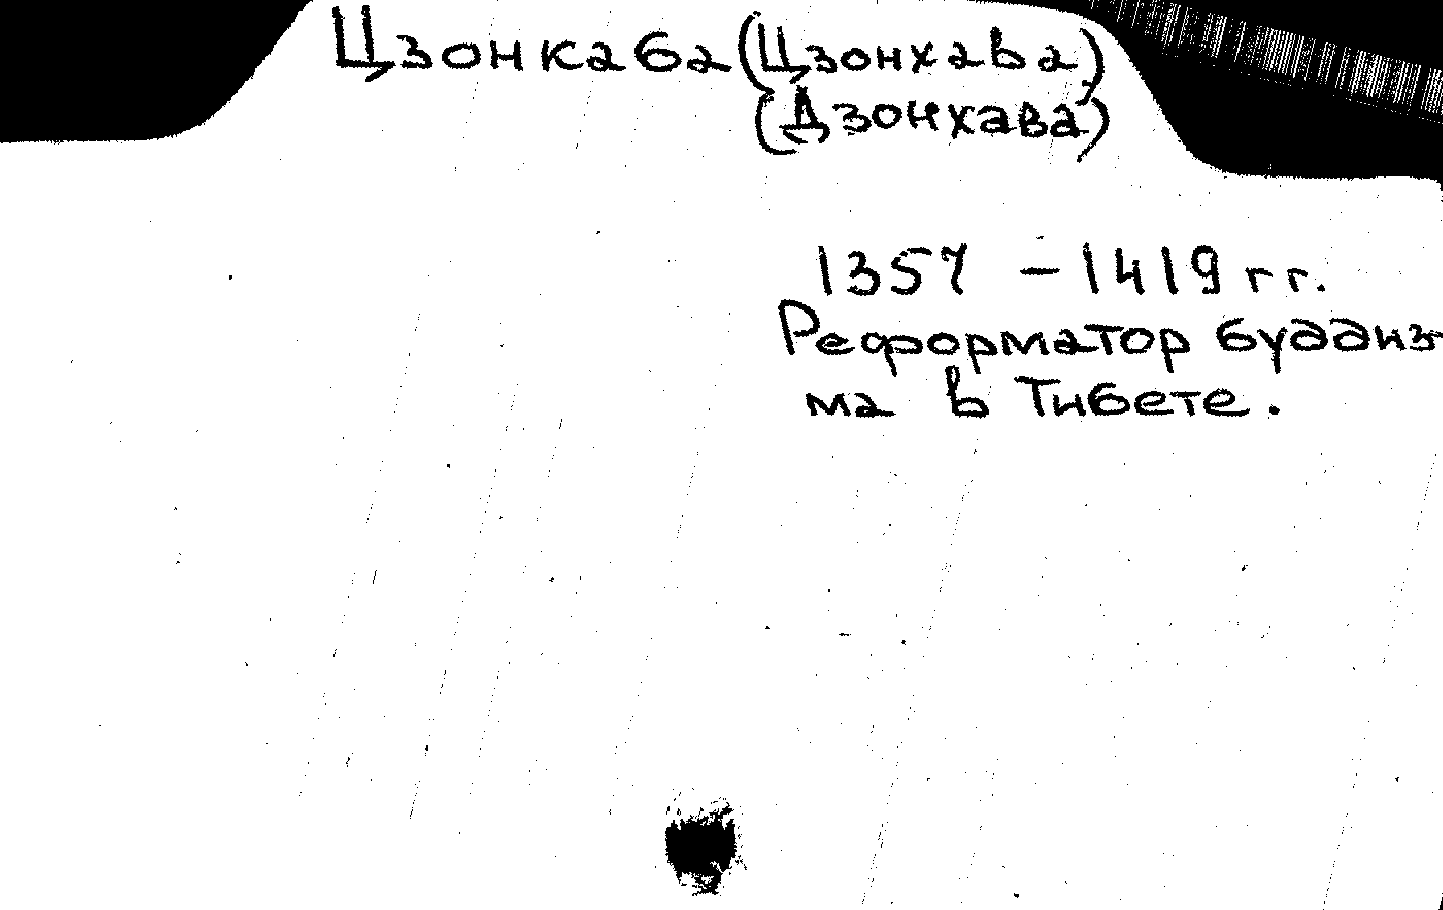 Цзонкаба (Цзонхава)
(Дзонхава)
1357 - 1419 гг.
Реформатор буддиз-
ма в Тибете.